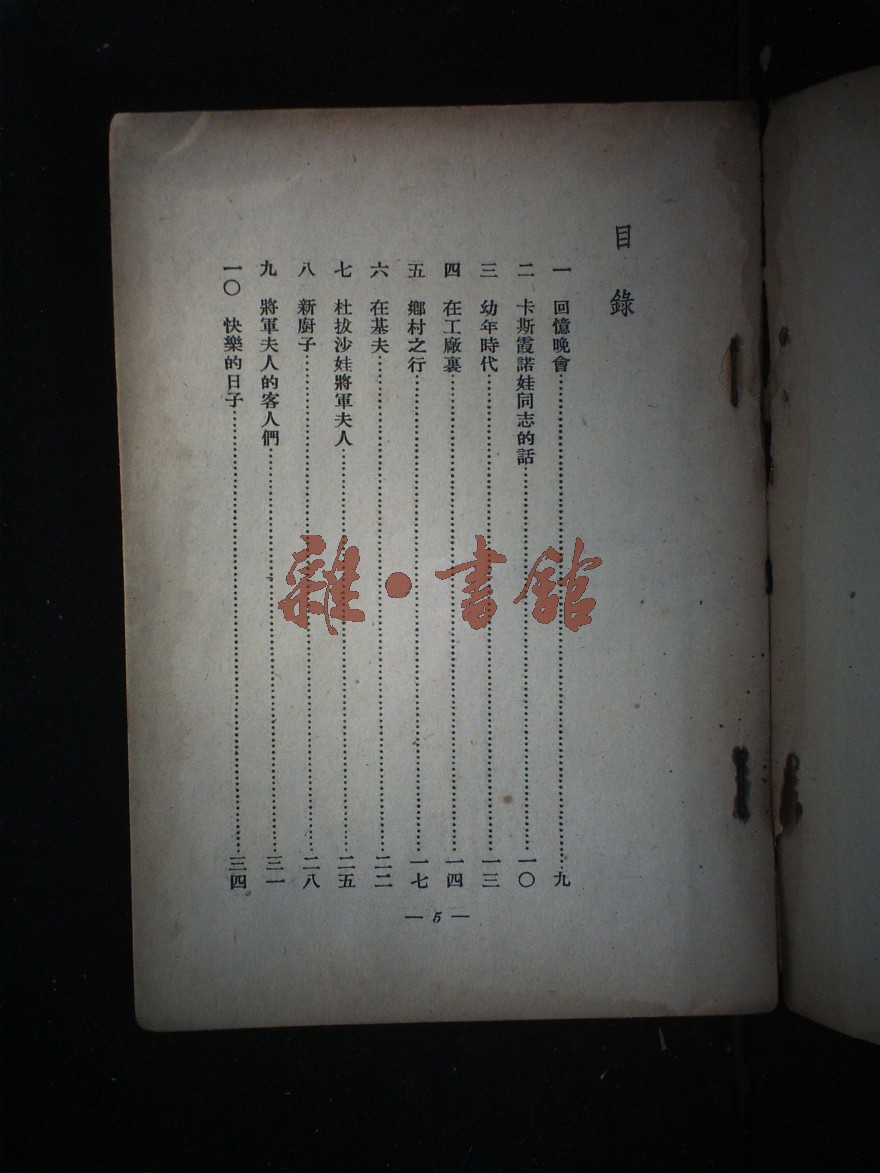 目錄
一 回憶晚會……九
二 卡斯霞諾娃同志的話……一〇
三 幼年時代……一三
四 在工廠裏……一四
五 鄉村之行……一七
六 在基夫……二二
七 杜拔沙娃將軍夫人……二五
八 新廚子……二八
九 將軍夫人的客人們……三一
一〇 快樂的日子……三四
— 5 —
雜·書館